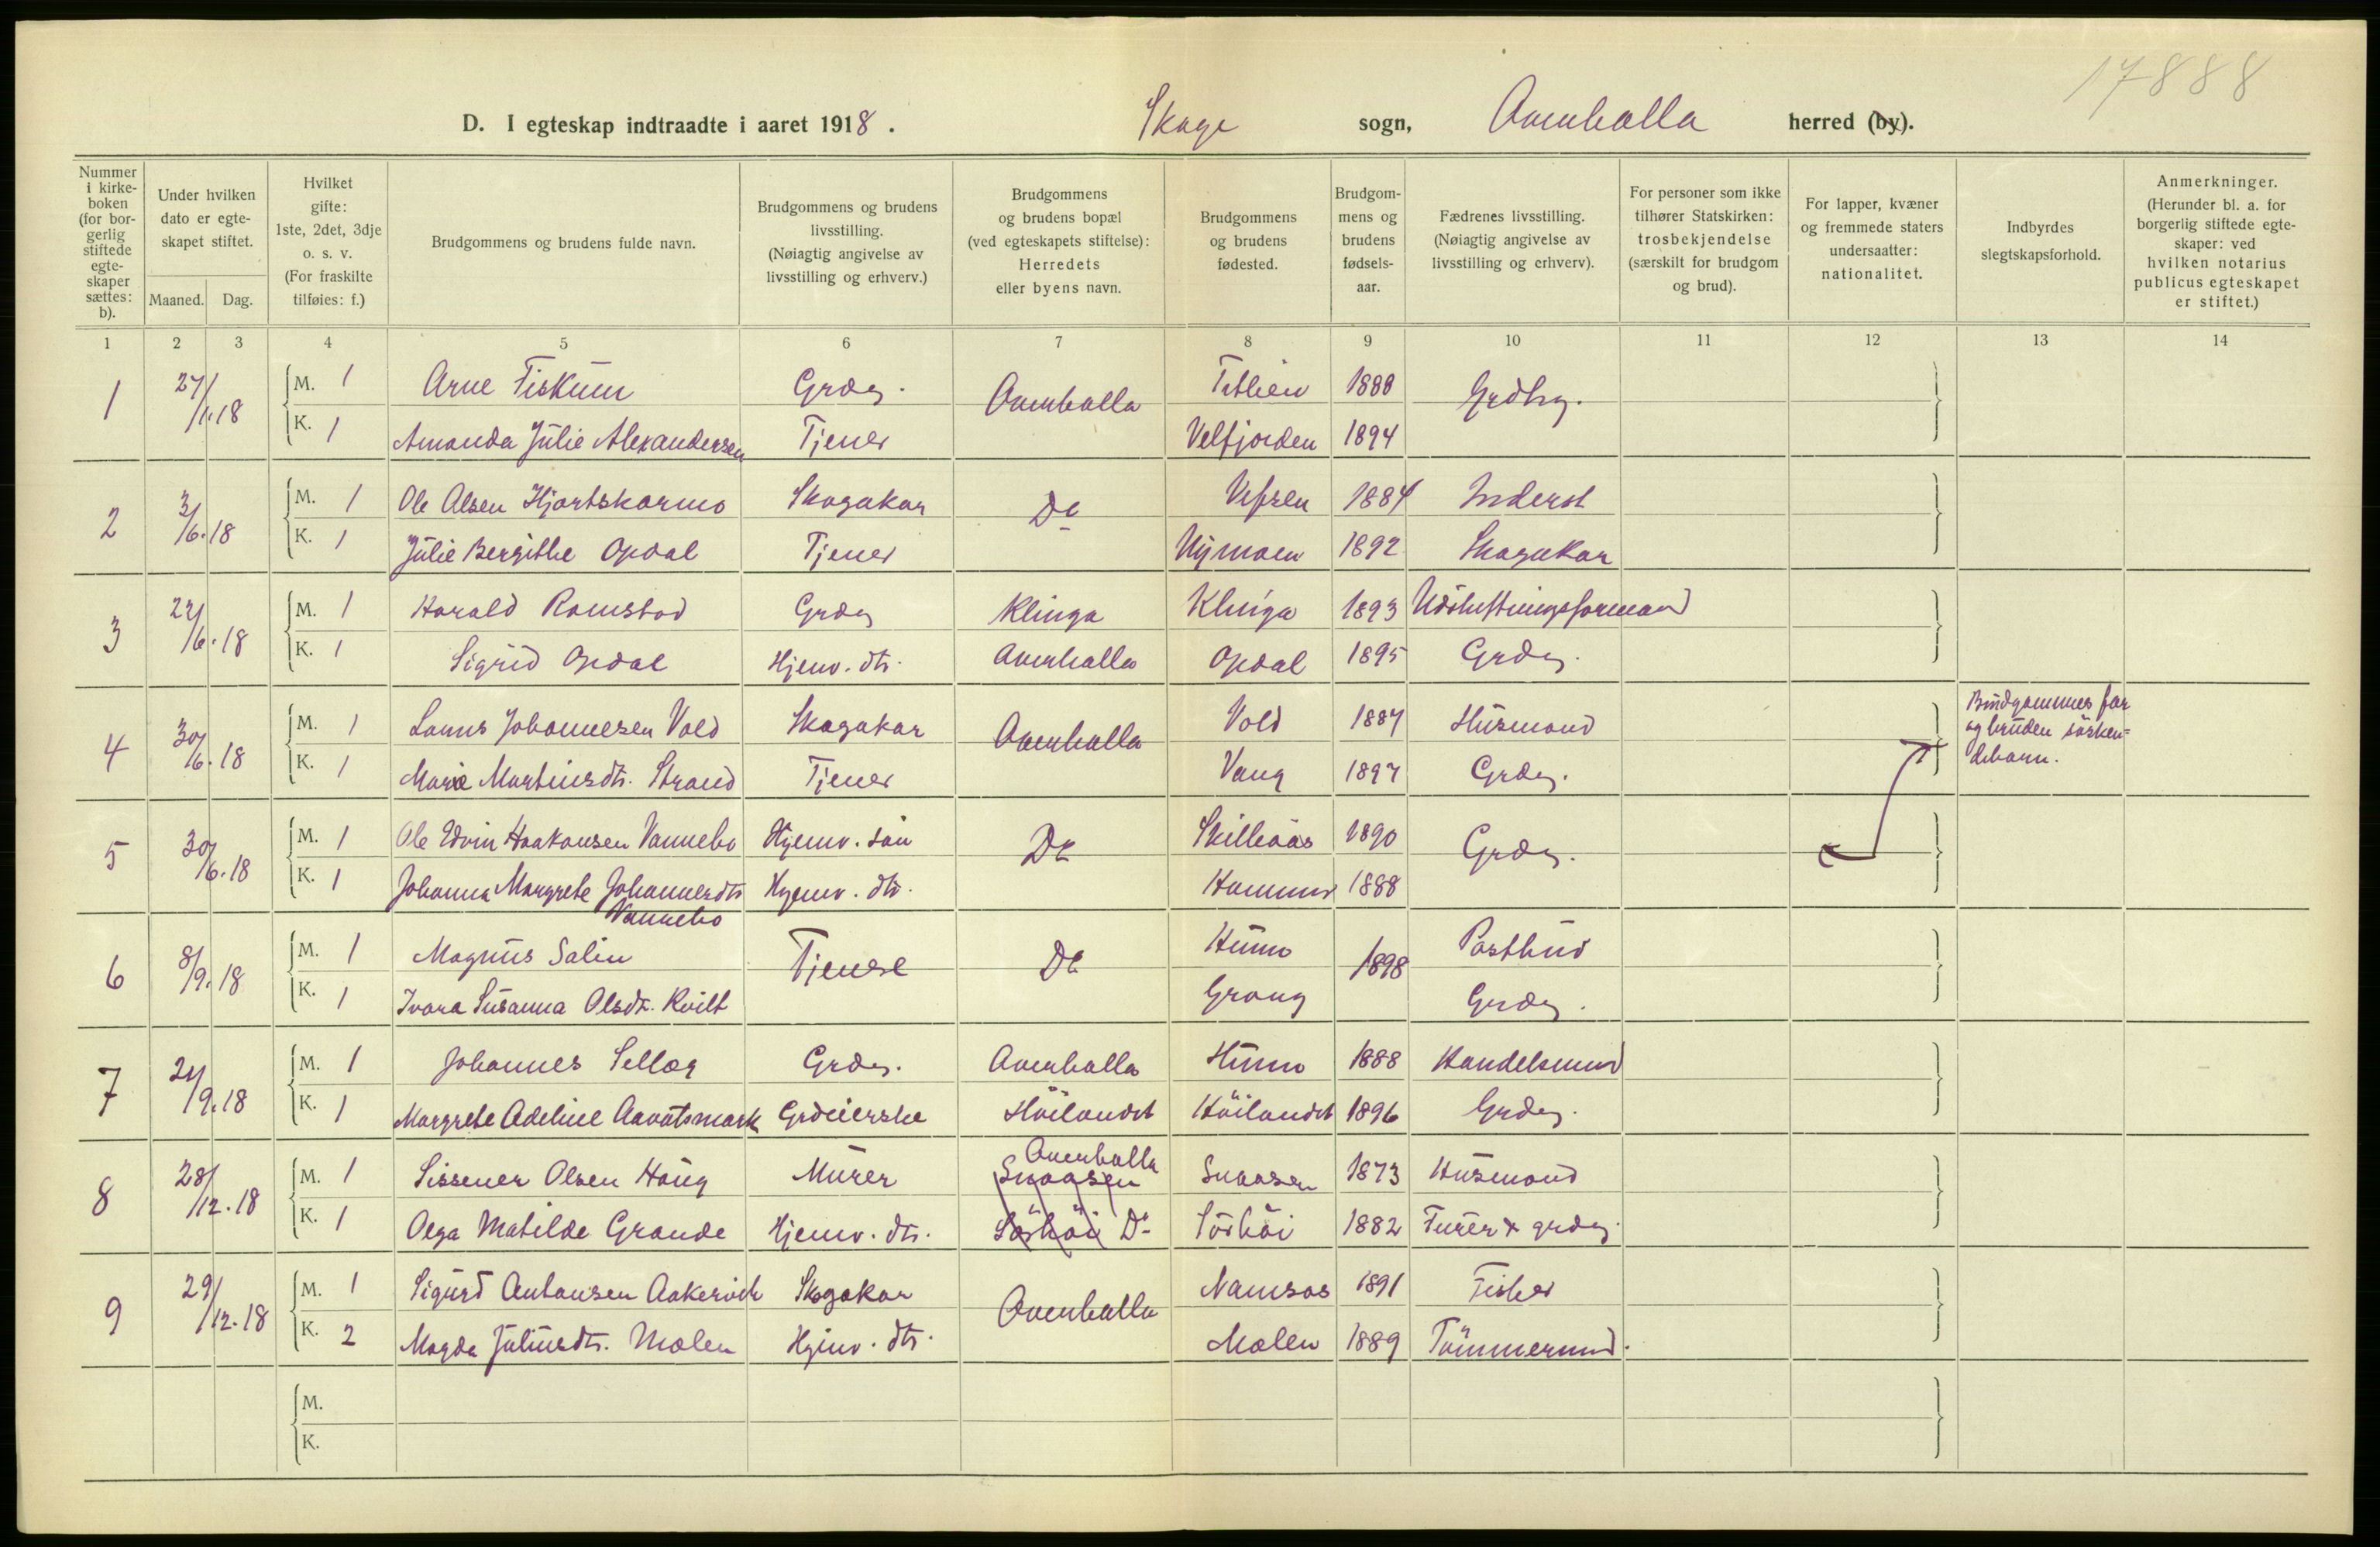 17888
D. I egteskap indtraadte i aaret 1918. Skage sogn, Overhalla herred (by).
Nummer i kirke-boken (for bor-gerlig stiftede egte-skaper sættes: b).
Under hvilken dato er egte-skapet stiftet.
Maaned. Dag.
Hvilket gifte: 1ste, 2det, 3dje o. s. v. (For fraskilte tilføies: f.)
Brudgommens og brudens fulde navn.
Brudgommens og brudens livsstilling. (Nøiagtig angivelse av livsstilling og erhverv.)
Brudgommens og brudens bopæl (ved egteskapets stiftelse): Herredets eller byens navn.
Brudgommens og brudens fødested.
Brudgom-mens og brudens fødsels-aar.
Fædrenes livsstilling. (Nøiagtig angivelse av livsstilling og erhverv).
For personer som ikke tilhører Statskirken: trosbekjendelse (særskilt for brudgom og brud).
For lapper, kvæner og fremmede staters undersaatter: nationalitet.
Indbyrdes slegtskapsforhold.
Anmerkninger. (Herunder bl. a. for borgerlig stiftede egte-skaper: ved hvilken notarius publicus egteskapet er stiftet.)
1 2 3 4 5 6 7 8 9 10 11 12 13 14
1 27/1.18 M. 1 Arne Fiskum Grdeg. Overhalla 1888 Grdbrg.
K. 1 Amanda Julie Alexandersen Tjener Velfjorden 1894
2 3/6.18 M. 1 Ole Olsen Hjortskarmo Skogskar Do Vefsen 1884 Inderst
K. 1 Julie Bergithe Opdal Tjener 1892 Skogskar
3 22/6.18 M. 1 Harald Ramstad Grdeg Klinga Klinga 1893 Udskiftningsformand
K. 1 Sigrid Opdal Hjemv. dtr. Overhalla Opdal 1895 Grdeg.
4 30/6.18 M. 1 Johannesen Vold Skogskar Overhalla Vold 1887 Husmand
K. 1 Marie Martinsdtr. Strand Tjener Vang 1897 Grdeg.
Brudgommens far og bruden søsken=debarn.
5 30/6.18 M. 1 Ole Edvin Haakonsen Vannebo Hjemv. søn Do Skilleaas 1890 Grdeg.
K. 1 Johanna Margrete Johannesdtr Vannebo Hjemv. dtr. Hammer 1888
6 8/9.18 M. 1 Magnus Salin Tjener Do Hunn 1898 Postbud
K. 1 Ivara Susanna Olsdtr. Kvilt Grong Grdeg.
7 21/9.18 M. 1 Johannes Sellæg Grdeg. Overhalla Hunn 1888 Handelsmand
K. 1 Margrete Adeline Aavatsmark Grdeierske Høilandet Høilandet 1896 Grdeg.
8 28/12.18 M. 1 Sissener Olsen Haug Murer Snaasen Overhalla Snaasen 1873 Husmand
K. 1 Olga Matilde Grande Hjemv. dtr. Sørhøi Do Sørhøi 1882 Furer & grdeg.
9 29/12.18 M. 1 Sigurd Antonsen Aakervik Skogskar Overhalla Namsos 1891 Fisker
K. 2 Magda Juliusdtr. Mælen Hjemv. dtr. Mælen 1889 Tømmermd.
M.
K.